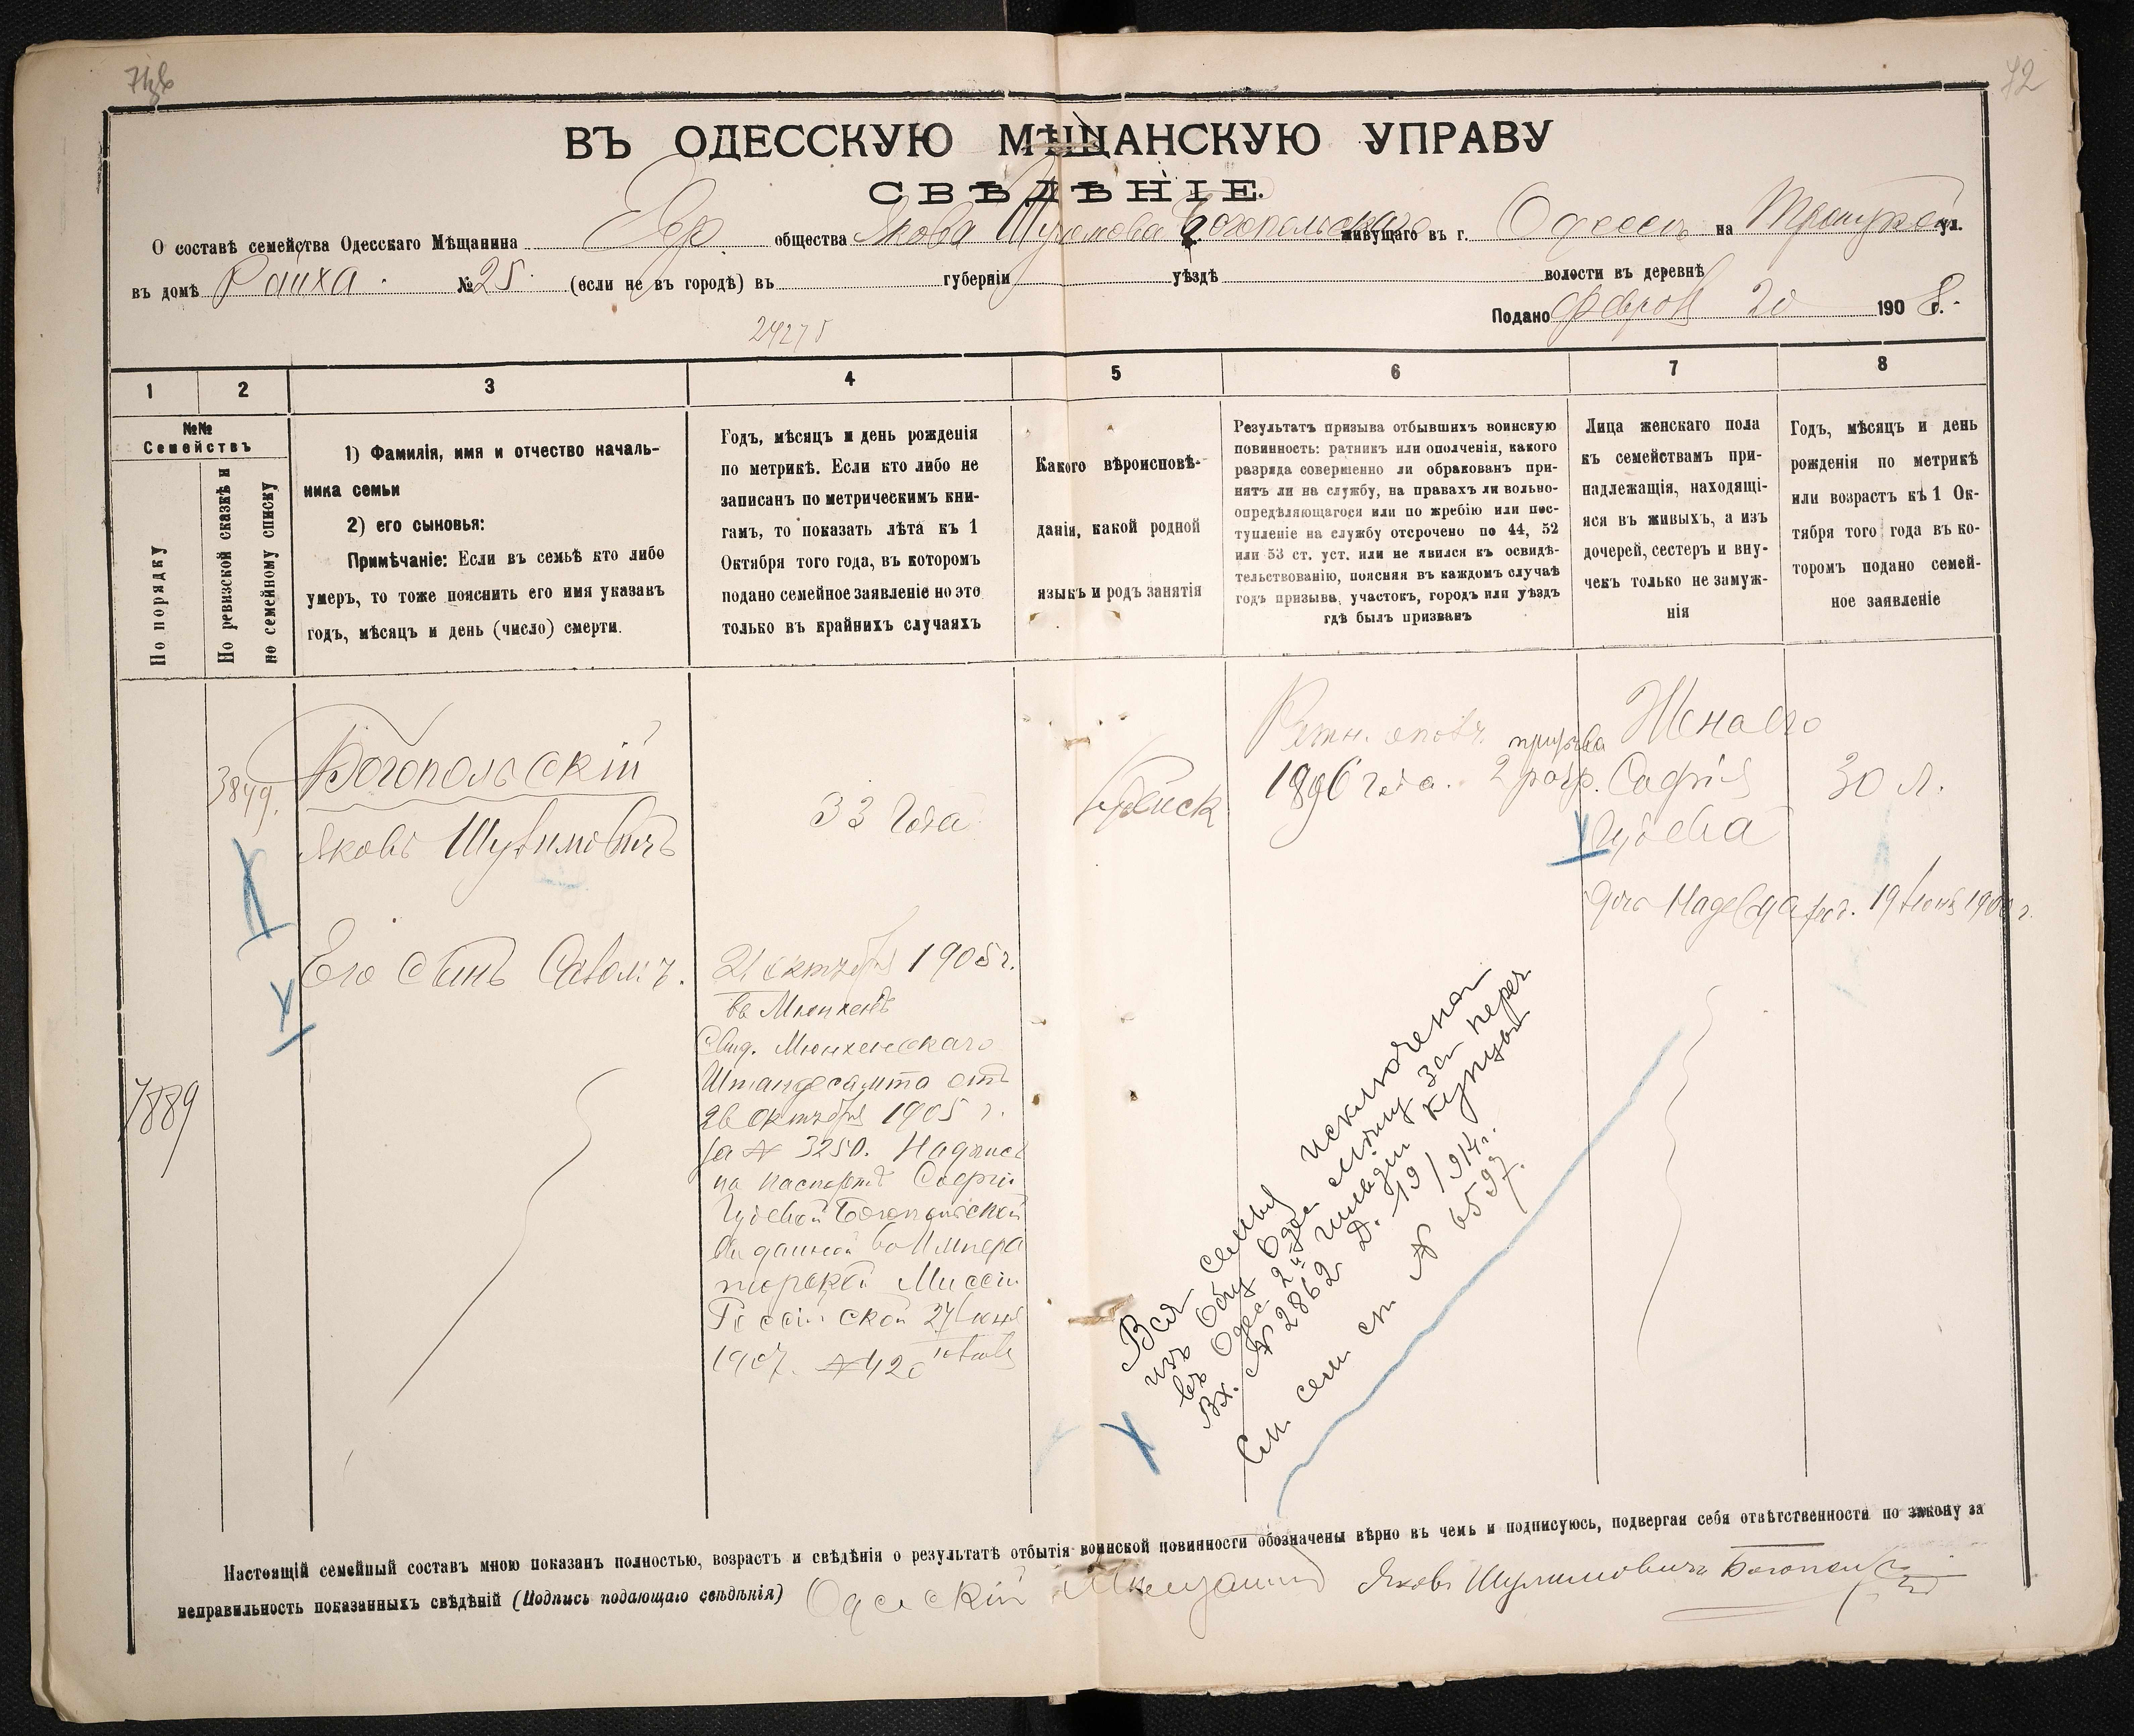 72
ВЪ ОДЕССКУЮ МѢЩАНСКУЮ УПРАВУ
СВѢДѢНІЕ.
О составѣ семейства Одесскаго Мѣщанина Евр. общества Якова Шулимова Богопольскаго живущаго въ г. Одессѣ на Троицкой ул.
въ домѣ Райха. № 25. (если не въ городѣ) въ губерніи уѣздѣ волости въ деревнѣ
Подано Февраля 20 1908 г.
24275
1 2 3 4 5 6 7 8
№№
Семействъ
По порядку
По ревизской сказкѣ и
по семейному списку
1) Фамилія, имя и отчество началь-
ника семьи
2) его сыновья:
Примѣчаніе: Если въ семьѣ кто либо
умеръ, то тоже пояснить его имя указавъ
годъ, мѣсяцъ и день (число) смерти.
Годъ, мѣсяцъ и день рожденія
по метрикѣ. Если кто либо не
записанъ по метрическимъ кни-
гамъ, то показать лѣта къ 1
Октября того года, въ которомъ
подано семейное заявленіе но это
только въ крайнихъ случаяхъ
Какого вѣроисповѣ-
данія, какой родной
языкъ и родъ занятія
Результатъ призыва отбывшихъ воинскую
повинность: ратникъ или ополченія, какого
разряда совершенно ли обракованъ при-
нятъ ли на службу, на правахъ ли вольно-
опредѣляющагося или по жребію или пос-
тупленіе на службу отсрочено по 44, 52
или 53 ст. уст. или не явился къ освидѣ-
тельствованію, поясняя въ каждомъ случаѣ
годъ призыва, участокъ, городъ или уѣздъ
гдѣ былъ призванъ
Лица женскаго пола
къ семействамъ при-
надлежащія, находящі-
яся въ живыхъ, а изъ
дочерей, сестеръ и вну-
чекъ только не замуж-
нія
Годъ, мѣсяцъ и день
рожденія по метрикѣ
или возрастъ къ 1 Ок-
тября того года въ ко-
торомъ подано семей-
ное заявленіе
3849.
Богопольскій
Яковъ Шулимовичъ
33 года
Еврейск
Ратн. ополч. призыва
1896 года. 2 разр.
Жена его
Софія
Іудева
30 л.
дочь Надежда рож. 19 Іюня 1900 г.
Его сынъ
21 октября 1905 г.
въ Мюнхенѣ
Свид. Мюнхенскаго
Штандесамта отъ
26 октября 1905 г.
за № 3250. Надпись
на паспортѣ Софіи
Іудевой Богопольской
выданной въ Импера
торской Миссіи
Россійской 27 Іюня
1907. № 420
7889
Вся семья исключена
изъ общ Одес мѣщ за переч
въ Одес 2й гильдіи купцы
Вх. № 2862 Д. 19/914 г.
См. сем сп № 6597.
Настоящій семейный составъ мною показанъ полностью, возрастъ и свѣдѣнія о результатѣ отбытія воинской повинности обозначены вѣрно въ чемъ и подписуюсь, подвергая себя отвѣтственности по закону за
неправильность показанныхъ свѣдѣній (Подпись подающаго свѣдѣнія) Одесскій Мѣщанинъ Яковъ Шулимовичъ Богопольскій